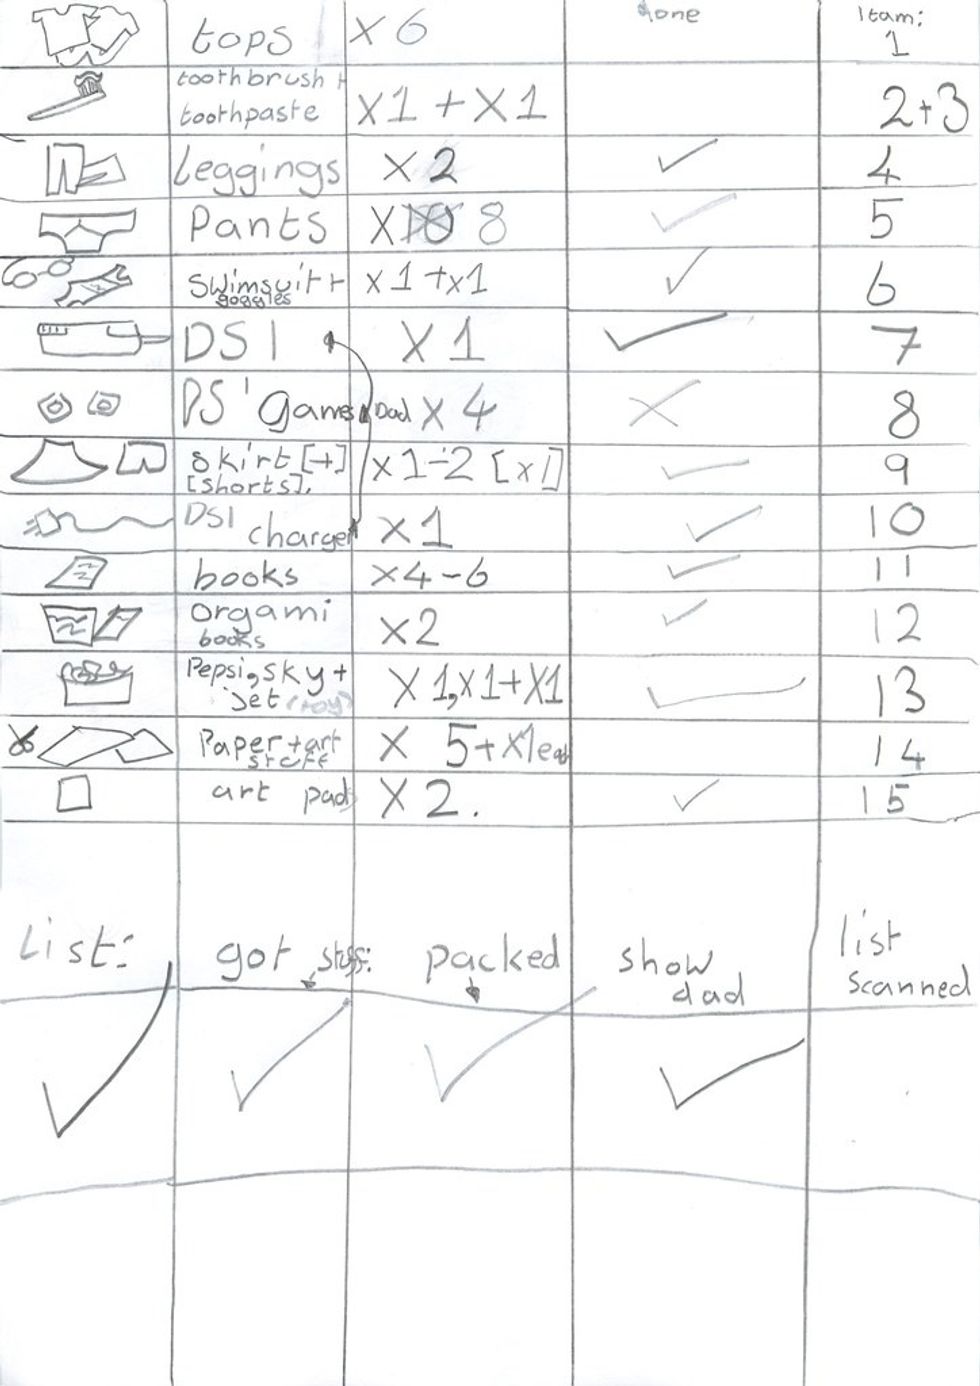 tops x 6 done Itam: 1
toothbrush +
toothpaste x1 + x1 2+3
Leggings x 2 4
Pants x 10 8 5
Swimsuit + x1 + x1 6
goggles
DSI x 1 7
DS' Games Dad x 4 8
skirt [+] x 1-2 [x1] 9
[shorts].
DSI charger x1 10
books x4-6 11
orgami x2 12
books
Pepsi, sky + x 1, x1 + x1 13
jet (toy)
Paper + art x 5 + x1 each 14
stuff
art pad x 2. 15
List: got stuff: packed show dad list scanned